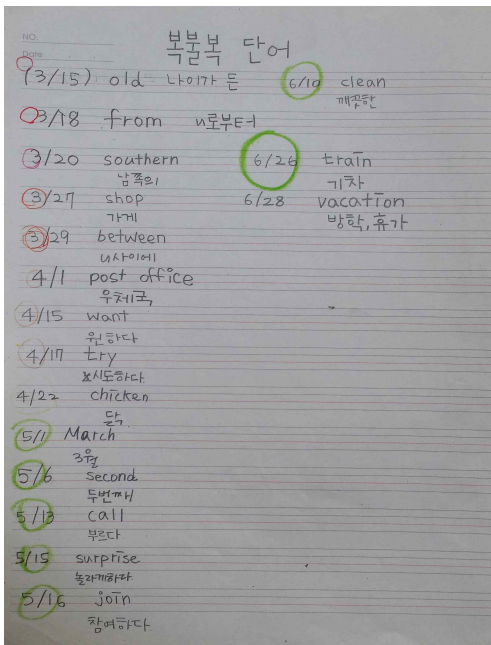 NO.
Date
복불복 단어
(3/15) old 나이가 든
3/18 from ~로부터
3/20 southern
남쪽의
3/27 shop
가게
3/29 between
~사이에
4/1 post office
우체국
4/15 want
원하다
4/17 try
시도하다
4/22 chicken
닭
5/1 March
3월
5/6 second
두번째
5/13 call
부르다
5/15 surprise
놀라게하다
5/16 join
참여하다
6/10 clean
깨끗한
6/26 train
기차
6/28 vacation
방학, 휴가